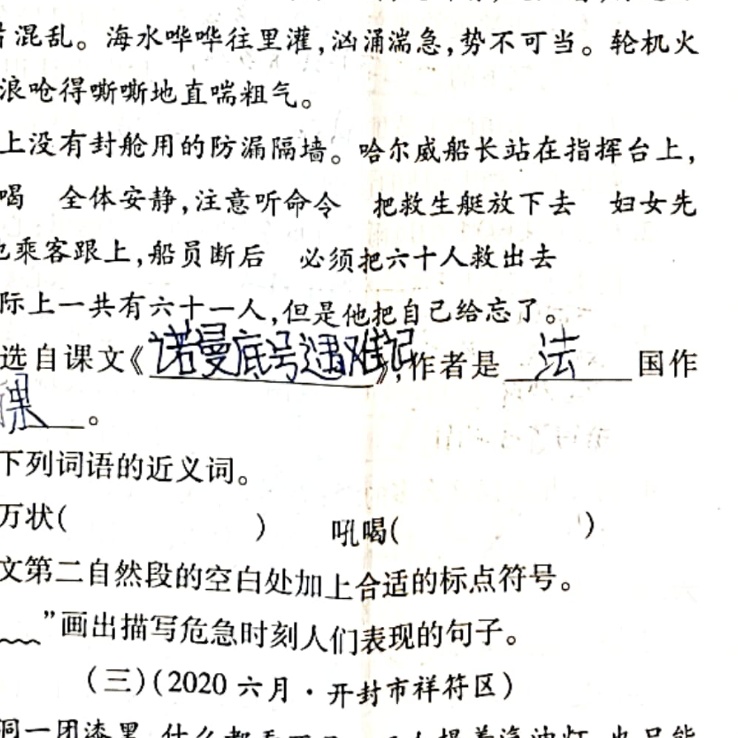 混乱。海水哗哗往里灌,汹涌湍急,势不可当。轮机火
浪呛得嘶嘶地直喘粗气。
上没有封舱用的防漏隔墙。哈尔威船长站在指挥台上,
喝 全体安静,注意听命令 把救生艇放下去 妇女先
乘客跟上,船员断后 必须把六十人救出去
际上一共有六十一人,但是他把自己给忘了。
选自课文《诺曼底号遇难记》,作者是 法 国作
。
下列词语的近义词。
万状( ) 吼喝( )
文第二自然段的空白处加上合适的标点符号。
”画出描写危急时刻人们表现的句子。
(三)(2020 六月·开封市祥符区)
洞一团漆黑,什么都看